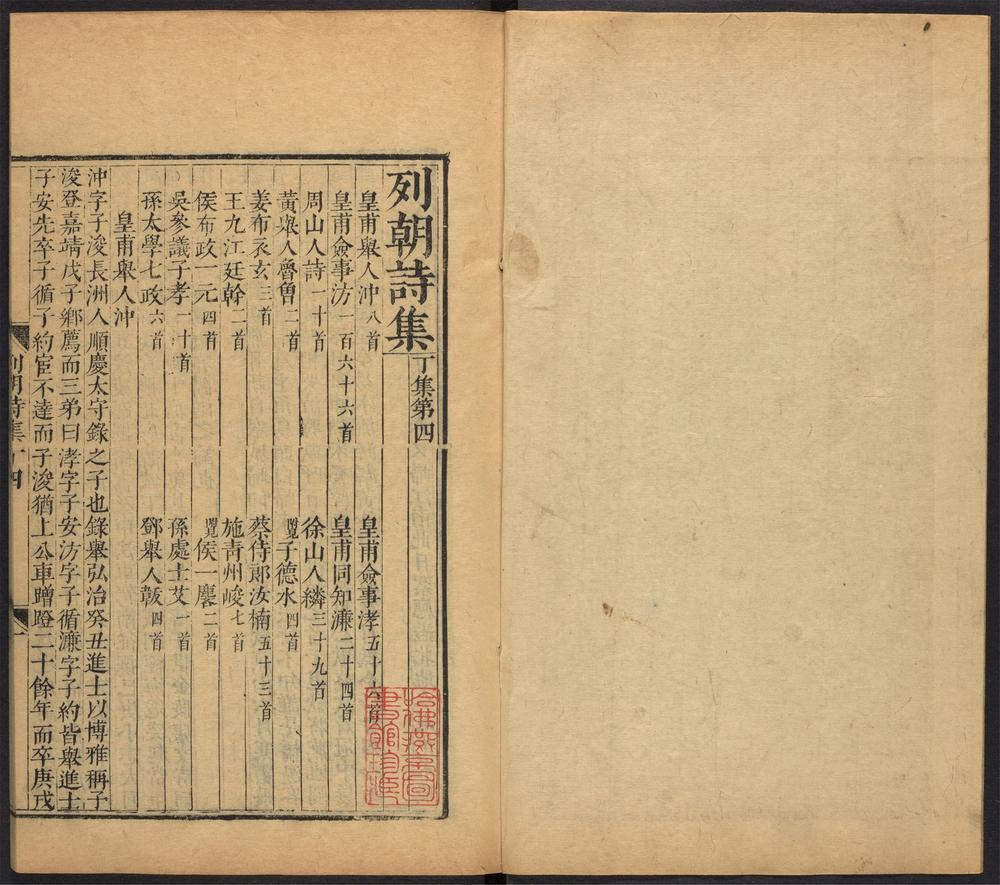 列朝詩集丁集第四
皇甫舉人沖八首 皇甫僉事涍五十六首
皇甫僉事汸一百六十六首 皇甫同知濂二十四首
周山人詩一十首 徐山人繗三十九首
黃舉人魯曾二首 覽子德水四首
姜布衣玄三首 蔡侍郎汝楠五十三首
王九江廷幹二首 施青州峻七首
侯布政一元四首 覽侯一麐二首
吳參議子孝一十首 孫處士艾一首
孫太學七政六首 鄧舉人韍四首
皇甫舉人沖
沖字子浚長洲人順慶太守錄之子也錄舉弘治癸丑進士以博雅稱子
浚登嘉靖戊子鄉薦而三弟曰涍字子安汸字子循濂字子約皆舉進士
子安先卒子循子約宦不達而子浚猶上公車蹭蹬二十餘年而卒庚戌
列朝詩集丁四 一
哈佛燕京圖書館珍藏